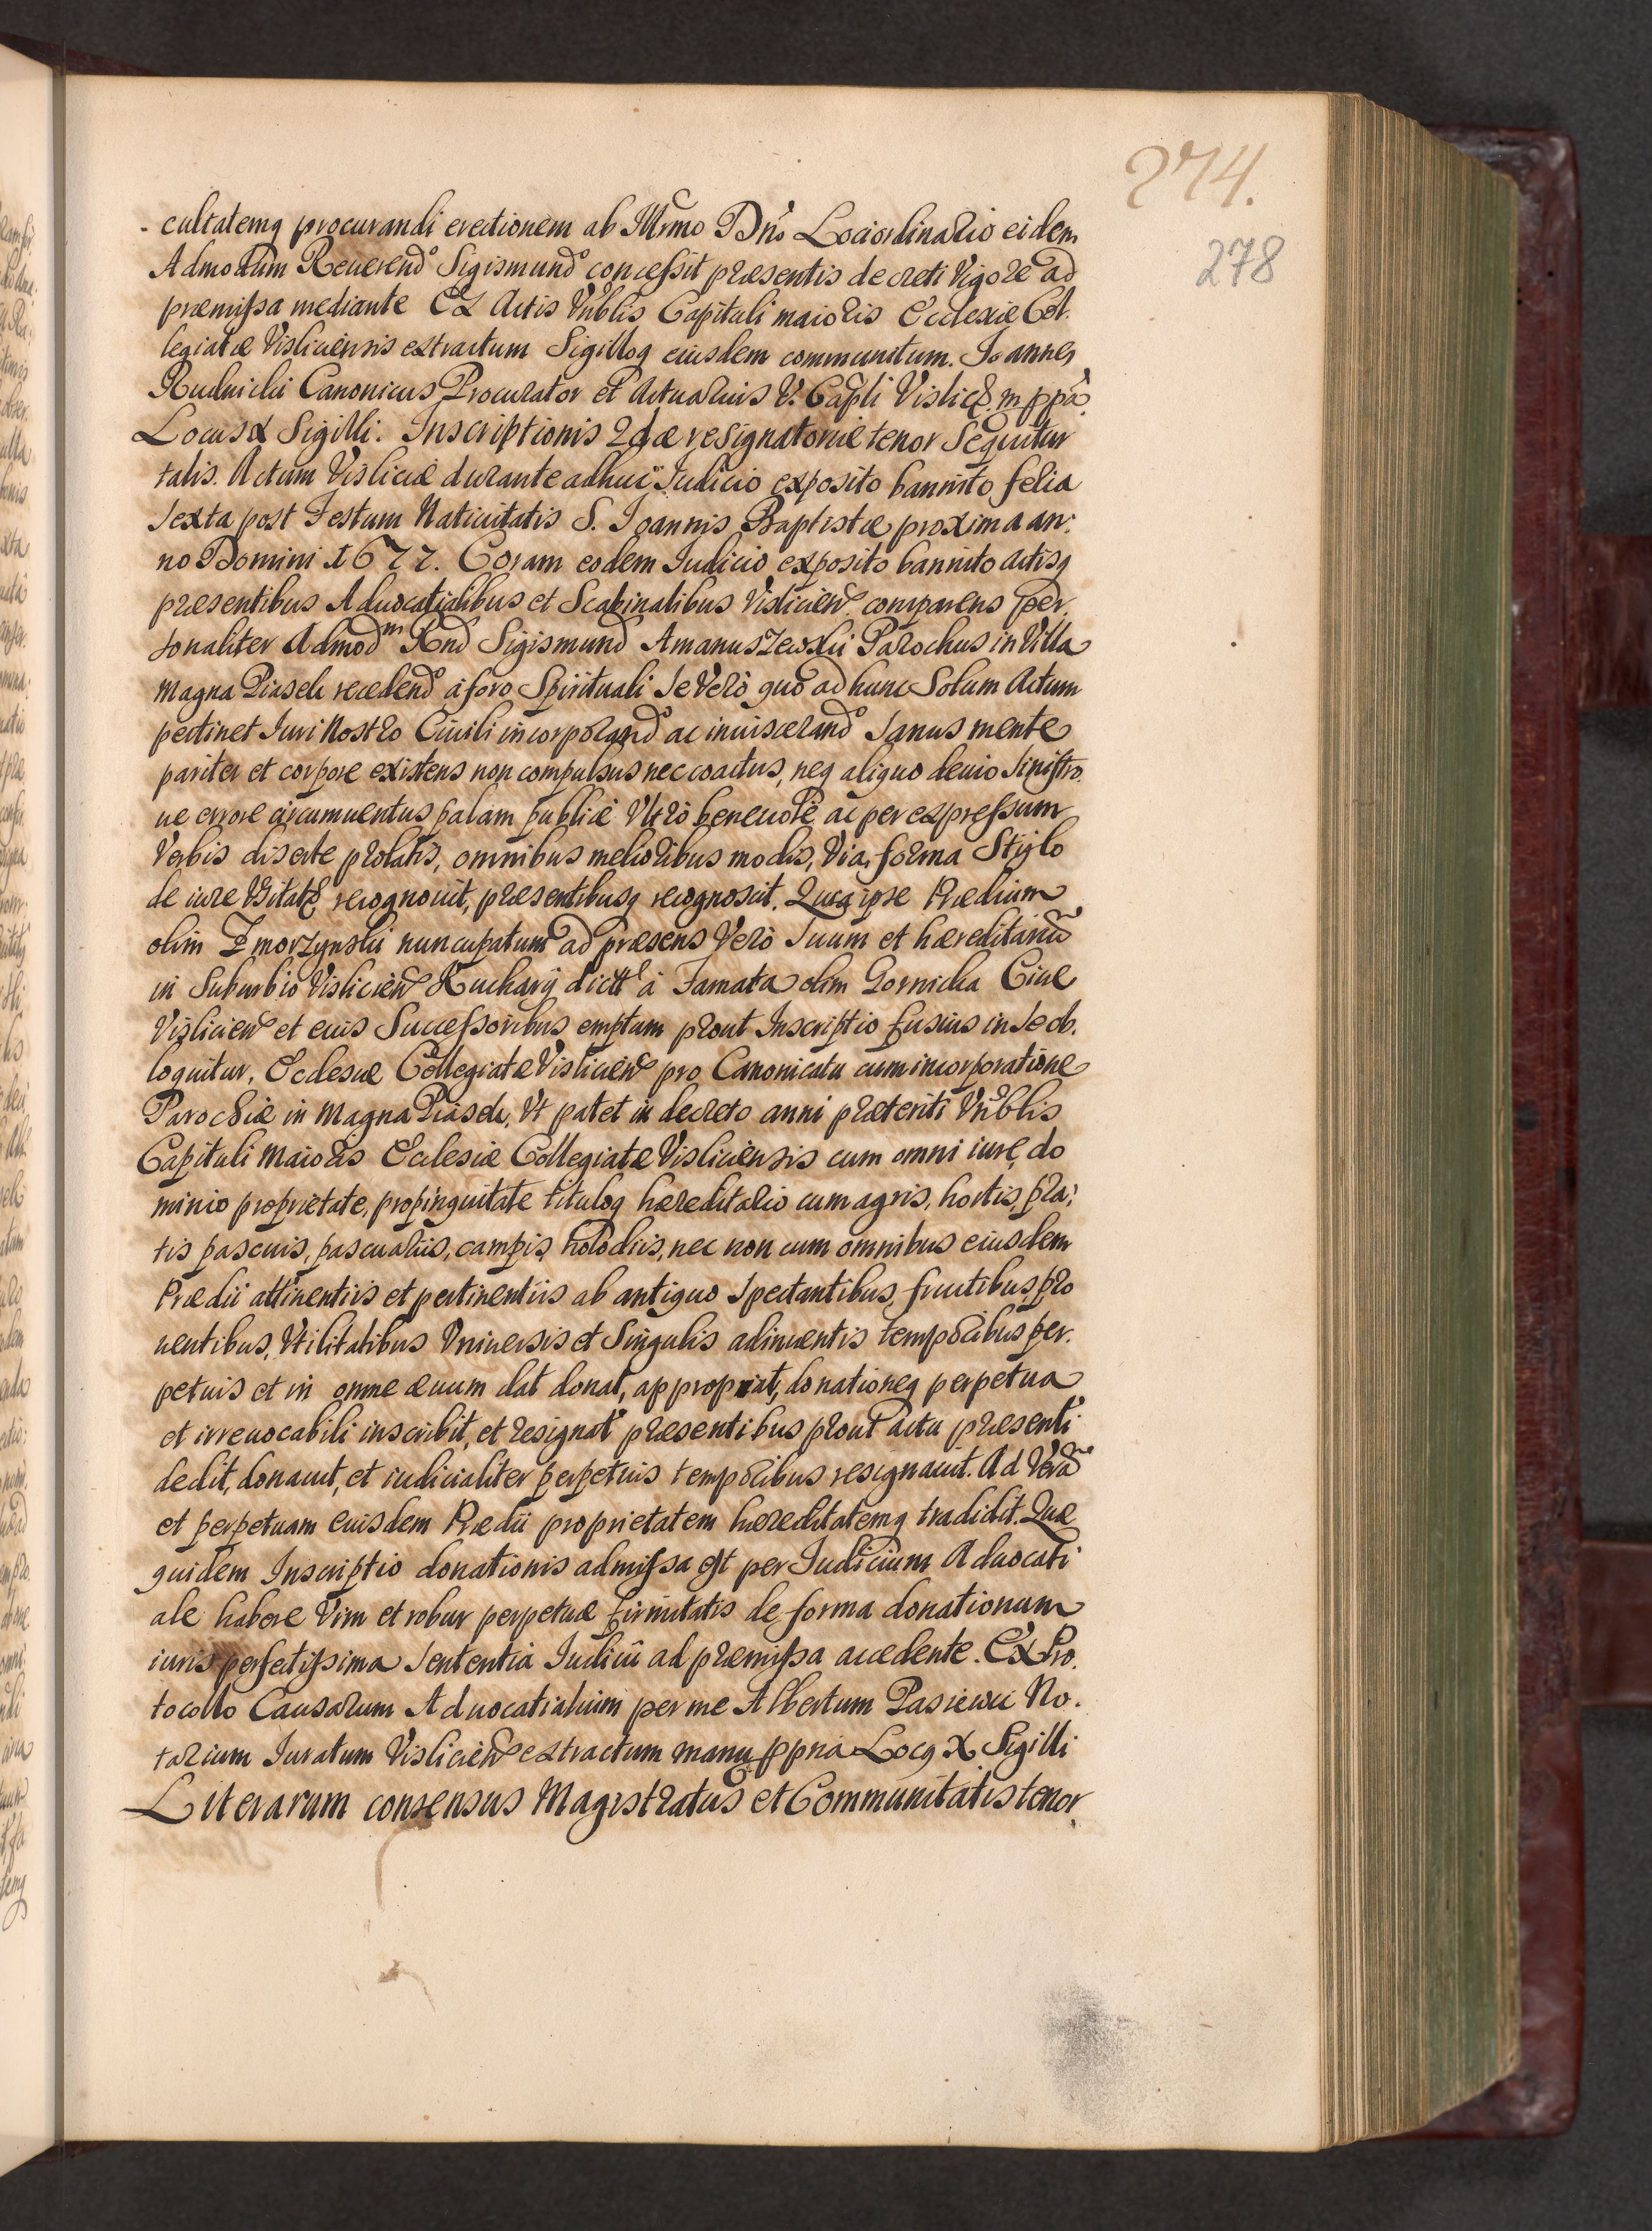 274.
278
cultatemq procurandi erectionem ab Illrmo Dño Lociordinario eidem
Admodum Reuerend° Sigismund° concessit præsentis decreti Vigore ad
præmissa mediante Ex Actis Vñblis Capituli maioris Ecclesiæ Col.
legiatæ Visliciensis extractum Sigilloq eiusdem communitum. Joannes
Rudnicki Canonicus Procurator et Actuarius V. Capli Vislic. m ppa.
Locus x Sigilli. Inscriptionis 2dæ resignatoriæ tenor Sequitur
talis. Actum Visliciæ durante adhuc Judicio exposito bannito feria
sexta post Festum Natiuitatis S. Joannis Baptistæ proxima an:
no Domini 1677. Coram eodem Judicio exposito bannito actisq
præsentibus Aduocatialibus et Scabinalibus Vislicien. comparens per
sonaliter Admodm Rnd Sigismund Amanuszewski Parochus in Villa
magna Piasek recedend° á foro Spirituali se Verò quo ad hunc Solum Actum
pertinet Juri Nostro Ciuili incorporand° ac inuiscerand° sanus mente
pariter et corpore existens non compulsus nec coactus, neq aliquo deuio sinistro
ue errore circumuentus palam publicé Vltrò beneuolè ac per expressum
Verbis diserte prolatis, omnibus melioribus modis, Via, forma Stylo
de iure Vsitat recognouit, præsentibusq recognoscit. Quia ipse Prædium
olim Zmorzynski nuncupatum ad præsens Verò suum et hæreditariũ
in Suburbio Vislicien Kuchary dict á Famata olim Gornicka Ciue
Vislicien et eius Successoribus emptum prout Inscriptio fusius in se ob.
loquitur, Ecclesiæ Collegiatæ Vislicien pro Canonicatu cum incorporatione
Parochiæ in Magna Piasek, Vt patet in decreto anni præteriti Vñblis
Capituli Maioris Ecclesiæ Collegiatæ Visliciensis cum omni iure, do
minio proprietate, propinquitate tituloq hæreditario cum agris, hortis, pra:
tis pascuis, pascualiis, campis, hołodiis, nec non cum omnibus eiusdem
Prædii attinentiis et pertinentiis ab antiquo spectantibus, fructibus, pro
uentibus, Vtilitatibus Vniuersis et Singulis adinuentis temporibus per.
petuis et in omne æuum dat donat, appropriat, donationeq perpetua
et irreuocabili inscribit, et resignat præsentibus prout actu præsenti
dedit, donauit, et iudicialiter perpetuis temporibus resignauit. Ad Verã
et perpetuam eiusdem Prædii proprietatem hæreditatemq tradidit. Quæ
quidem Inscriptio donationis admissa est per Judicium Aduocati
ale habere Vim et robur perpetuæ firmitatis de forma donationum
iuris perfectissima sententia Judicii ad præmissa accedente. Ex Pro.
tocollo Causarum Aduocatialium per me Albertum Pasiewic No.
tarium Juratum Vislicien extractum manu ppria Locq X Sigilli
Literarum consensus Magistratus et Communitatis tenor